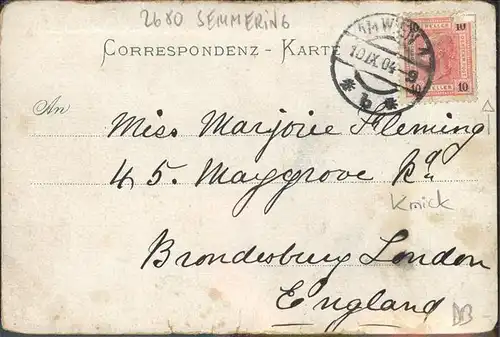 2680 SEMMERING
CORRESPONDENZ - KARTE
10 10
10 HELLER HELLER 10
WIEN 1
10 IX 04 9
* b *
An
Miss Marjorie Fleming
45. Maygrove Rd
Knick
Brondesbury London
England